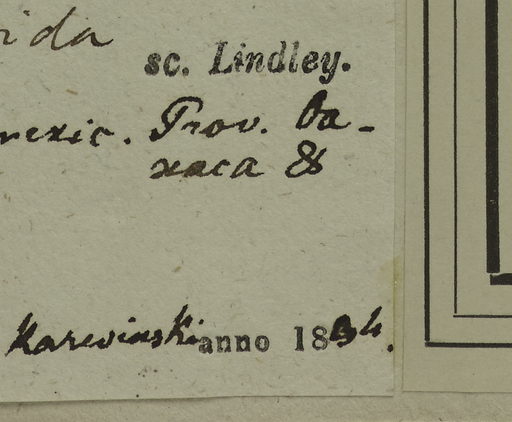 ida
sc. Lindley.
mexic. Prov. Oa-
xaca &
Karwinski anno 1834.